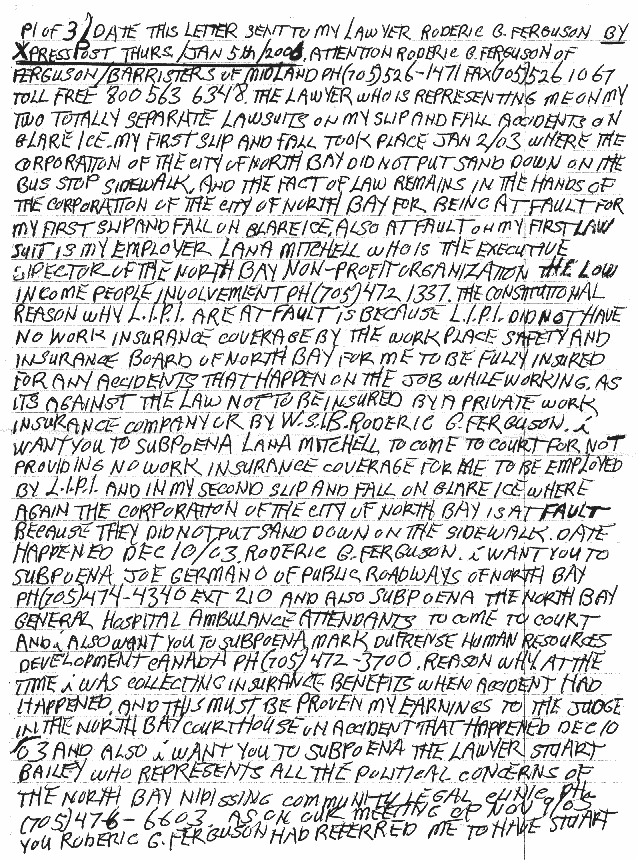 P1 OF 3/ DATE THIS LETTER SENT TO MY LAWYER RODERIC G. FERGUSON BY
XPRESSPOST THURS/JAN 5th/2006. ATTENTION RODERIC G. FERGUSON OF
FERGUSON/BARRISTERS OF MIDLAND PH(705)526-1471 FAX(705)526 1067
TOLL FREE 800 563 6348. THE LAWYER WHO IS REPRESENTING ME ON MY
TWO TOTALLY SEPARATE LAWSUITS ON MY SLIP AND FALL ACCIDENTS ON
GLARE ICE. MY FIRST SLIP AND FALL TOOK PLACE JAN 2/03 WHERE THE
CORPORATION OF THE CITY OF NORTH BAY DID NOT PUT SAND DOWN ON THE
BUS STOP SIDEWALK, AND THE FACT OF LAW REMAINS IN THE HANDS OF
THE CORPORATION OF THE CITY OF NORTH BAY FOR BEING AT FAULT FOR
MY FIRST SLIP AND FALL ON GLARE ICE, ALSO AT FAULT ON MY FIRST LAW
SUIT IS MY EMPLOYER LANA MITCHELL WHO IS THE EXECUTIVE
DIRECTOR OF THE NORTH BAY NON-PROFIT ORGANIZATION THE LOW
INCOME PEOPLE INVOLVEMENT PH(705)472 1337. THE CONSTITUTIONAL
REASON WHY L.I.P.I. ARE AT FAULT IS BECAUSE L.I.P.I. DID NOT HAVE
NO WORK INSURANCE COVERAGE BY THE WORK PLACE SAFETY AND
INSURANCE BOARD OF NORTH BAY FOR ME TO BE FULLY INSURED
FOR ANY ACCIDENTS THAT HAPPEN ON THE JOB WHILE WORKING, AS
ITS AGAINST THE LAW NOT TO BE INSURED BY A PRIVATE WORK
INSURANCE COMPANY OR BY W.S.I.B. RODERIC G. FERGUSON. i
WANT YOU TO SUBPOENA LANA MITCHELL TO COME TO COURT FOR NOT
PROVIDING NO WORK INSURANCE COVERAGE FOR ME TO BE EMPLOYED
BY L.I.P.I. AND IN MY SECOND SLIP AND FALL ON GLARE ICE WHERE
AGAIN THE CORPORATION OF THE CITY OF NORTH BAY IS AT FAULT
BECAUSE THEY DID NOT PUT SAND DOWN ON THE SIDEWALK. DATE
HAPPENED DEC 10/03. RODERIC G. FERGUSON. i WANT YOU TO
SUBPOENA JOE GERMANO OF PUBLIC ROADWAYS OF NORTH BAY
PH(705)474-4340 EXT 210 AND ALSO SUBPOENA THE NORTH BAY
GENERAL HOSPITAL AMBULANCE ATTENDANTS TO COME TO COURT
AND i ALSO WANT YOU TO SUBPOENA MARK DUFRENSE HUMAN RESOURCES
DEVELOPMENT CANADA PH(705)472-3700. REASON WHY AT THE
TIME i WAS COLLECTING INSURANCE BENEFITS WHEN ACCIDENT HAD
HAPPENED, AND THIS MUST BE PROVEN MY EARNINGS TO THE JUDGE
IN THE NORTH BAY COURTHOUSE ON ACCIDENT THAT HAPPENED DEC 10
/03 AND ALSO i WANT YOU TO SUBPOENA THE LAWYER STUART
BAILEY WHO REPRESENTS ALL THE POLITICAL CONCERNS OF
THE NORTH BAY NIPISSING COMMUNITY LEGAL CLINIC PH
(705)476-6603. AS ON OUR MEETING OF NOV 9/05
YOU RODERIC G. FERGUSON HAD REFERRED ME TO HAVE STUART